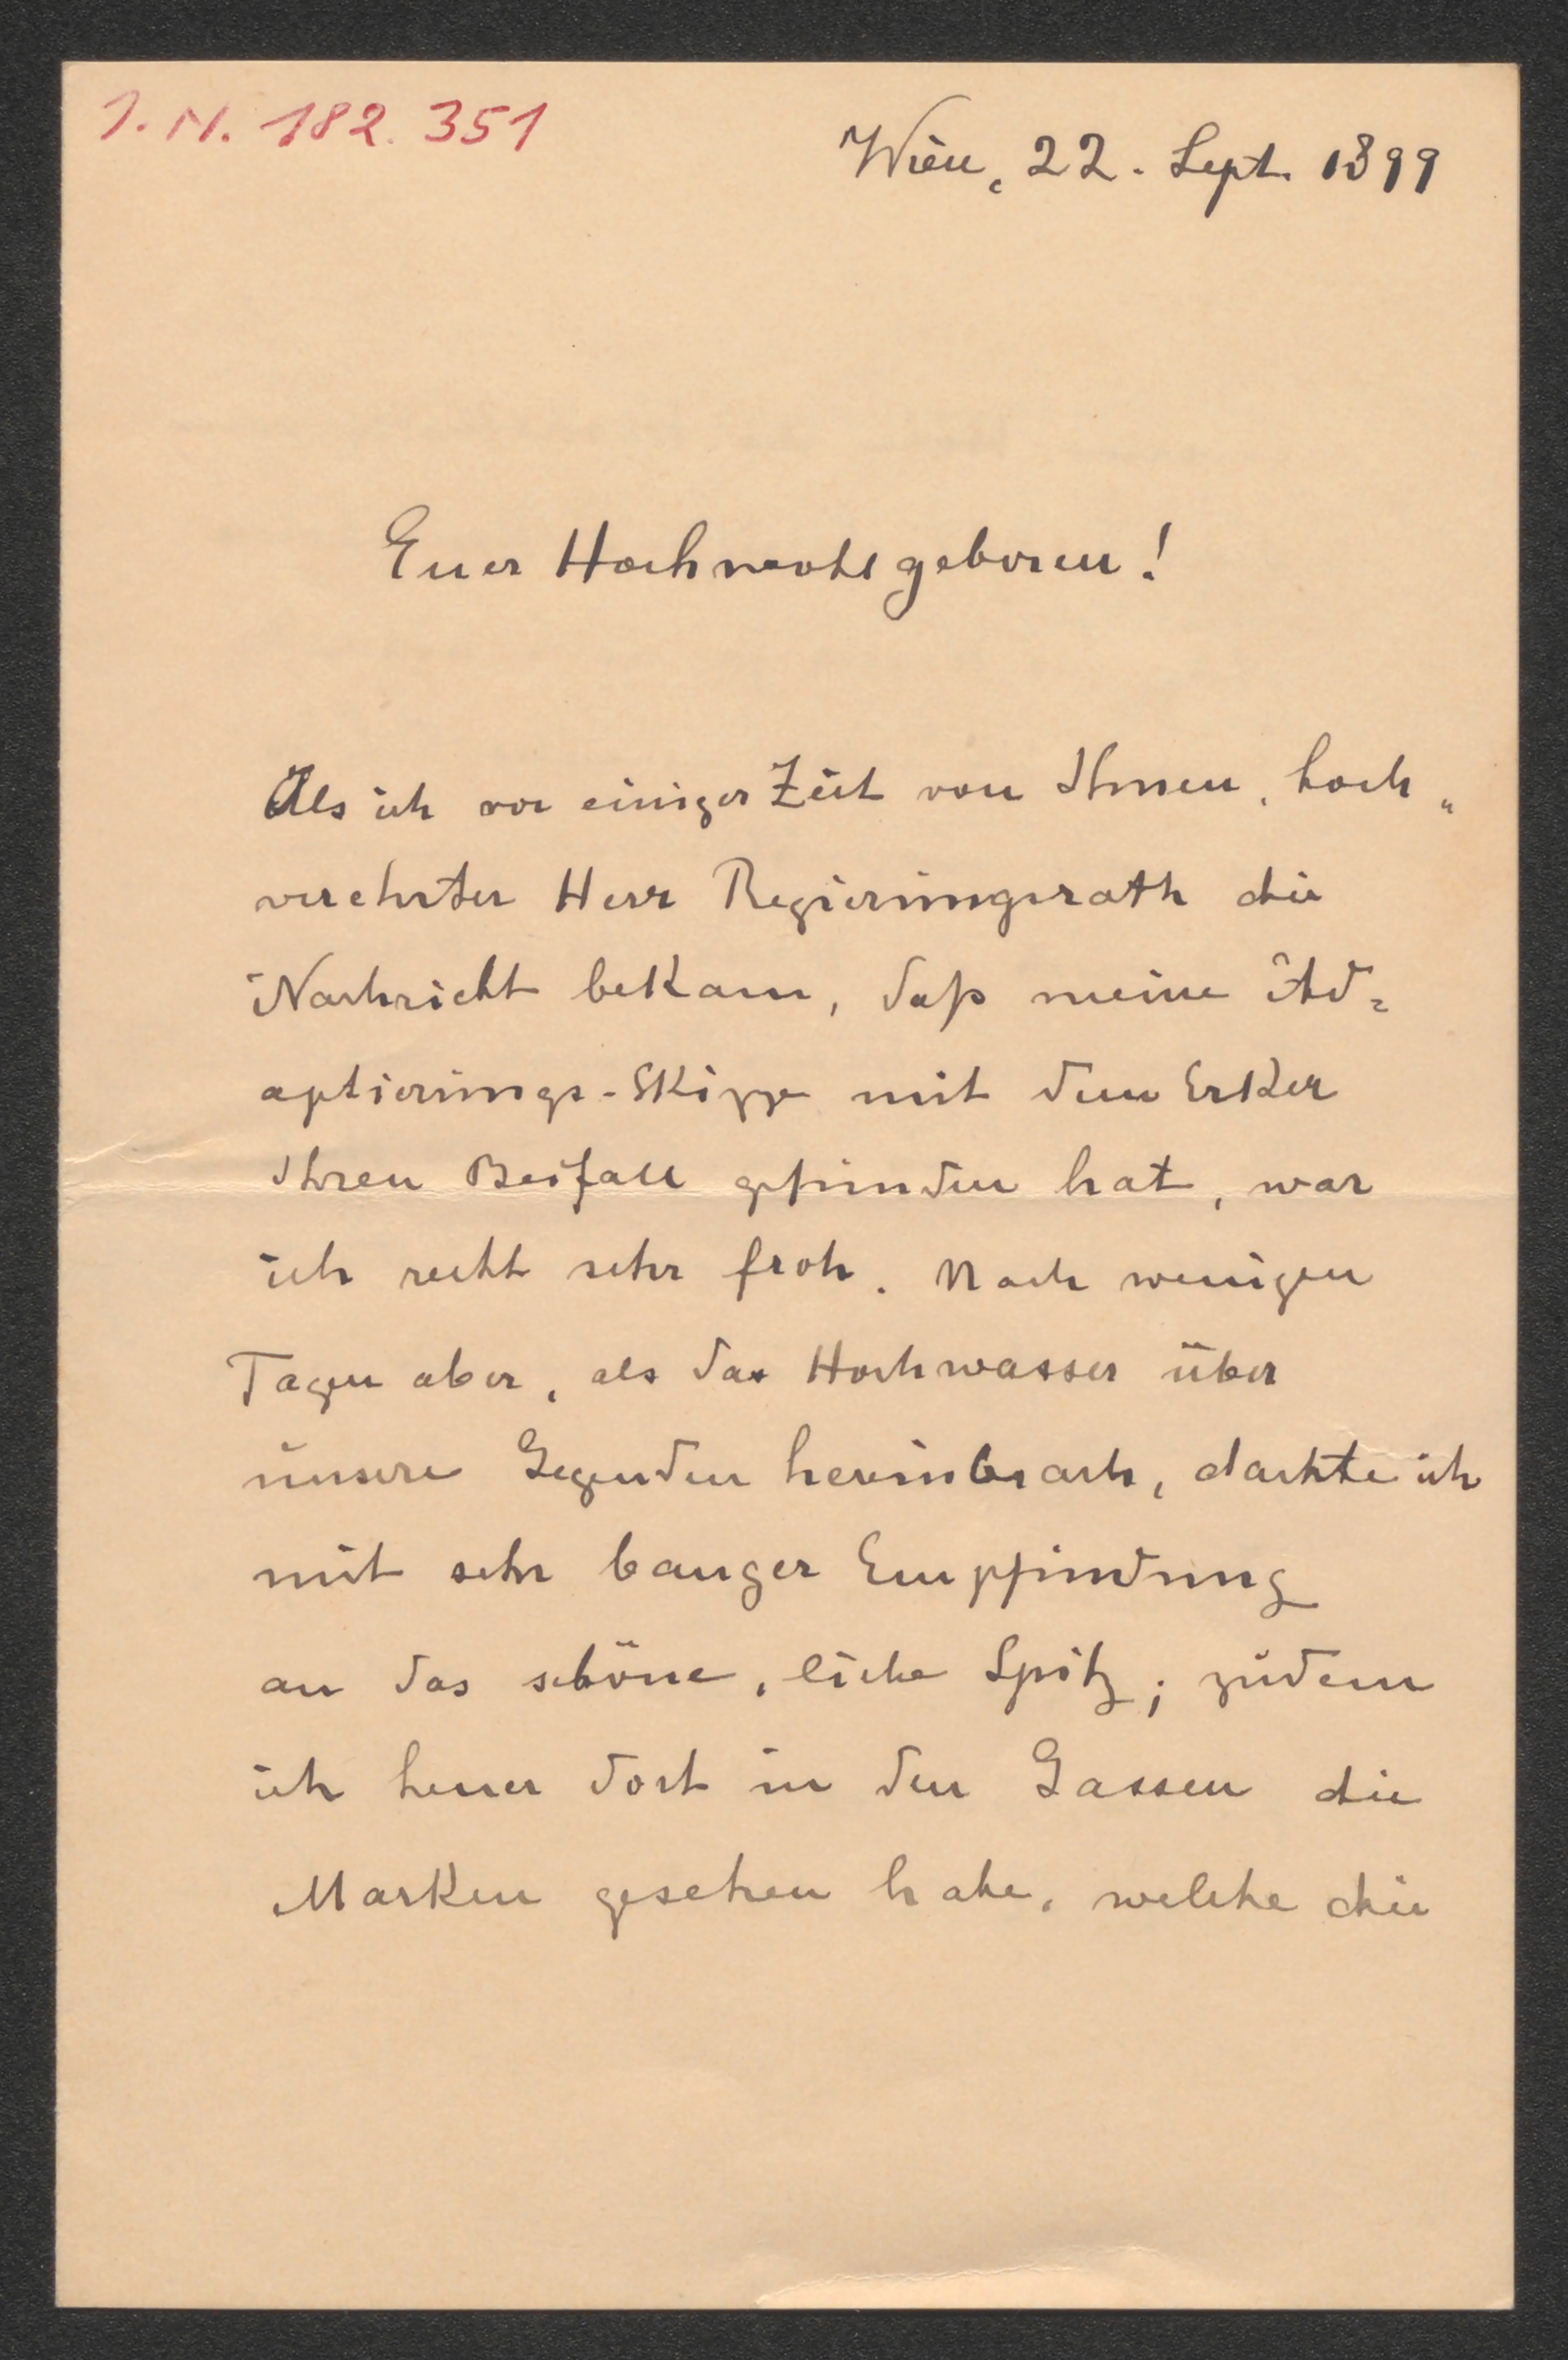 I. N. 182.351
Wien, 22. Sept. 1899
Euer Hochwohlgeboren!
Als ich vor einiger Zeit von Ihnen, hoch„
verehrter Herr Regierungsrath die
Nachricht bekam, daß meine Ad„
aptierungs-Skizze mit dem Erker
Ihren Beifall gefunden hat, war
ich recht sehr froh. Nach wenigen
Tagen aber, als das Hochwasser über
unsere Gegenden hereinbrach, dachte ich
mit sehr banger Empfindung
an das schöne, liebe Spitz; zudem
ich heuer dort in den Gassen die
Marken gesehen habe, welche die